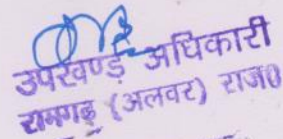 उपखण्ड अधिकारी
रामगढ़ (अलवर) राज०